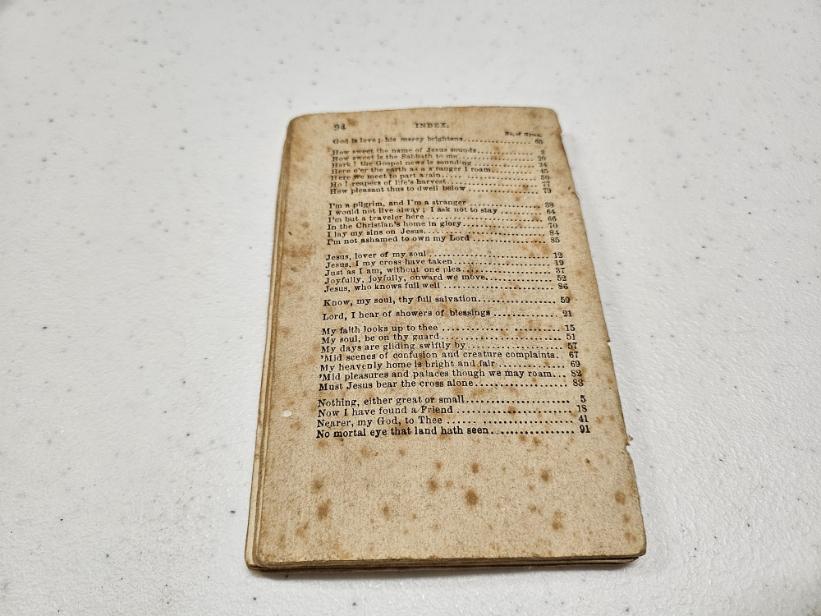 94 INDEX.
No. of Hymn.
God is love; his mercy brightens 65
How sweet the name of Jesus sounds
How sweet is the Sabbath to me
Hark! the Gospel news is sounding
Here o'er the earth as a stranger I roam
Here we meet to part again
Ho! reapers of life's harvest
How pleasant thus to dwell below
I'm a pilgrim, and I'm a stranger 38
I would not live alway; I ask not to stay 64
I'm but a traveler here 66
In the Christian's home in glory 70
I lay my sins on Jesus 84
I'm not ashamed to own my Lord 85
Jesus, lover of my soul 12
Jesus, I my cross have taken 19
Just as I am, without one plea 37
Joyfully, joyfully, onward we move 52
Jesus, who knows full well 86
Know, my soul, thy full salvation 59
Lord, I hear of showers of blessings 21
My faith looks up to thee 15
My soul, be on thy guard 51
My days are gliding swiftly by 57
'Mid scenes of confusion and creature complaints. 67
My heavenly home is bright and fair 69
'Mid pleasures and palaces though we may roam 82
Must Jesus bear the cross alone 83
Nothing, either great or small 5
Now I have found a Friend 18
Nearer, my God, to Thee 41
No mortal eye that land hath seen 91